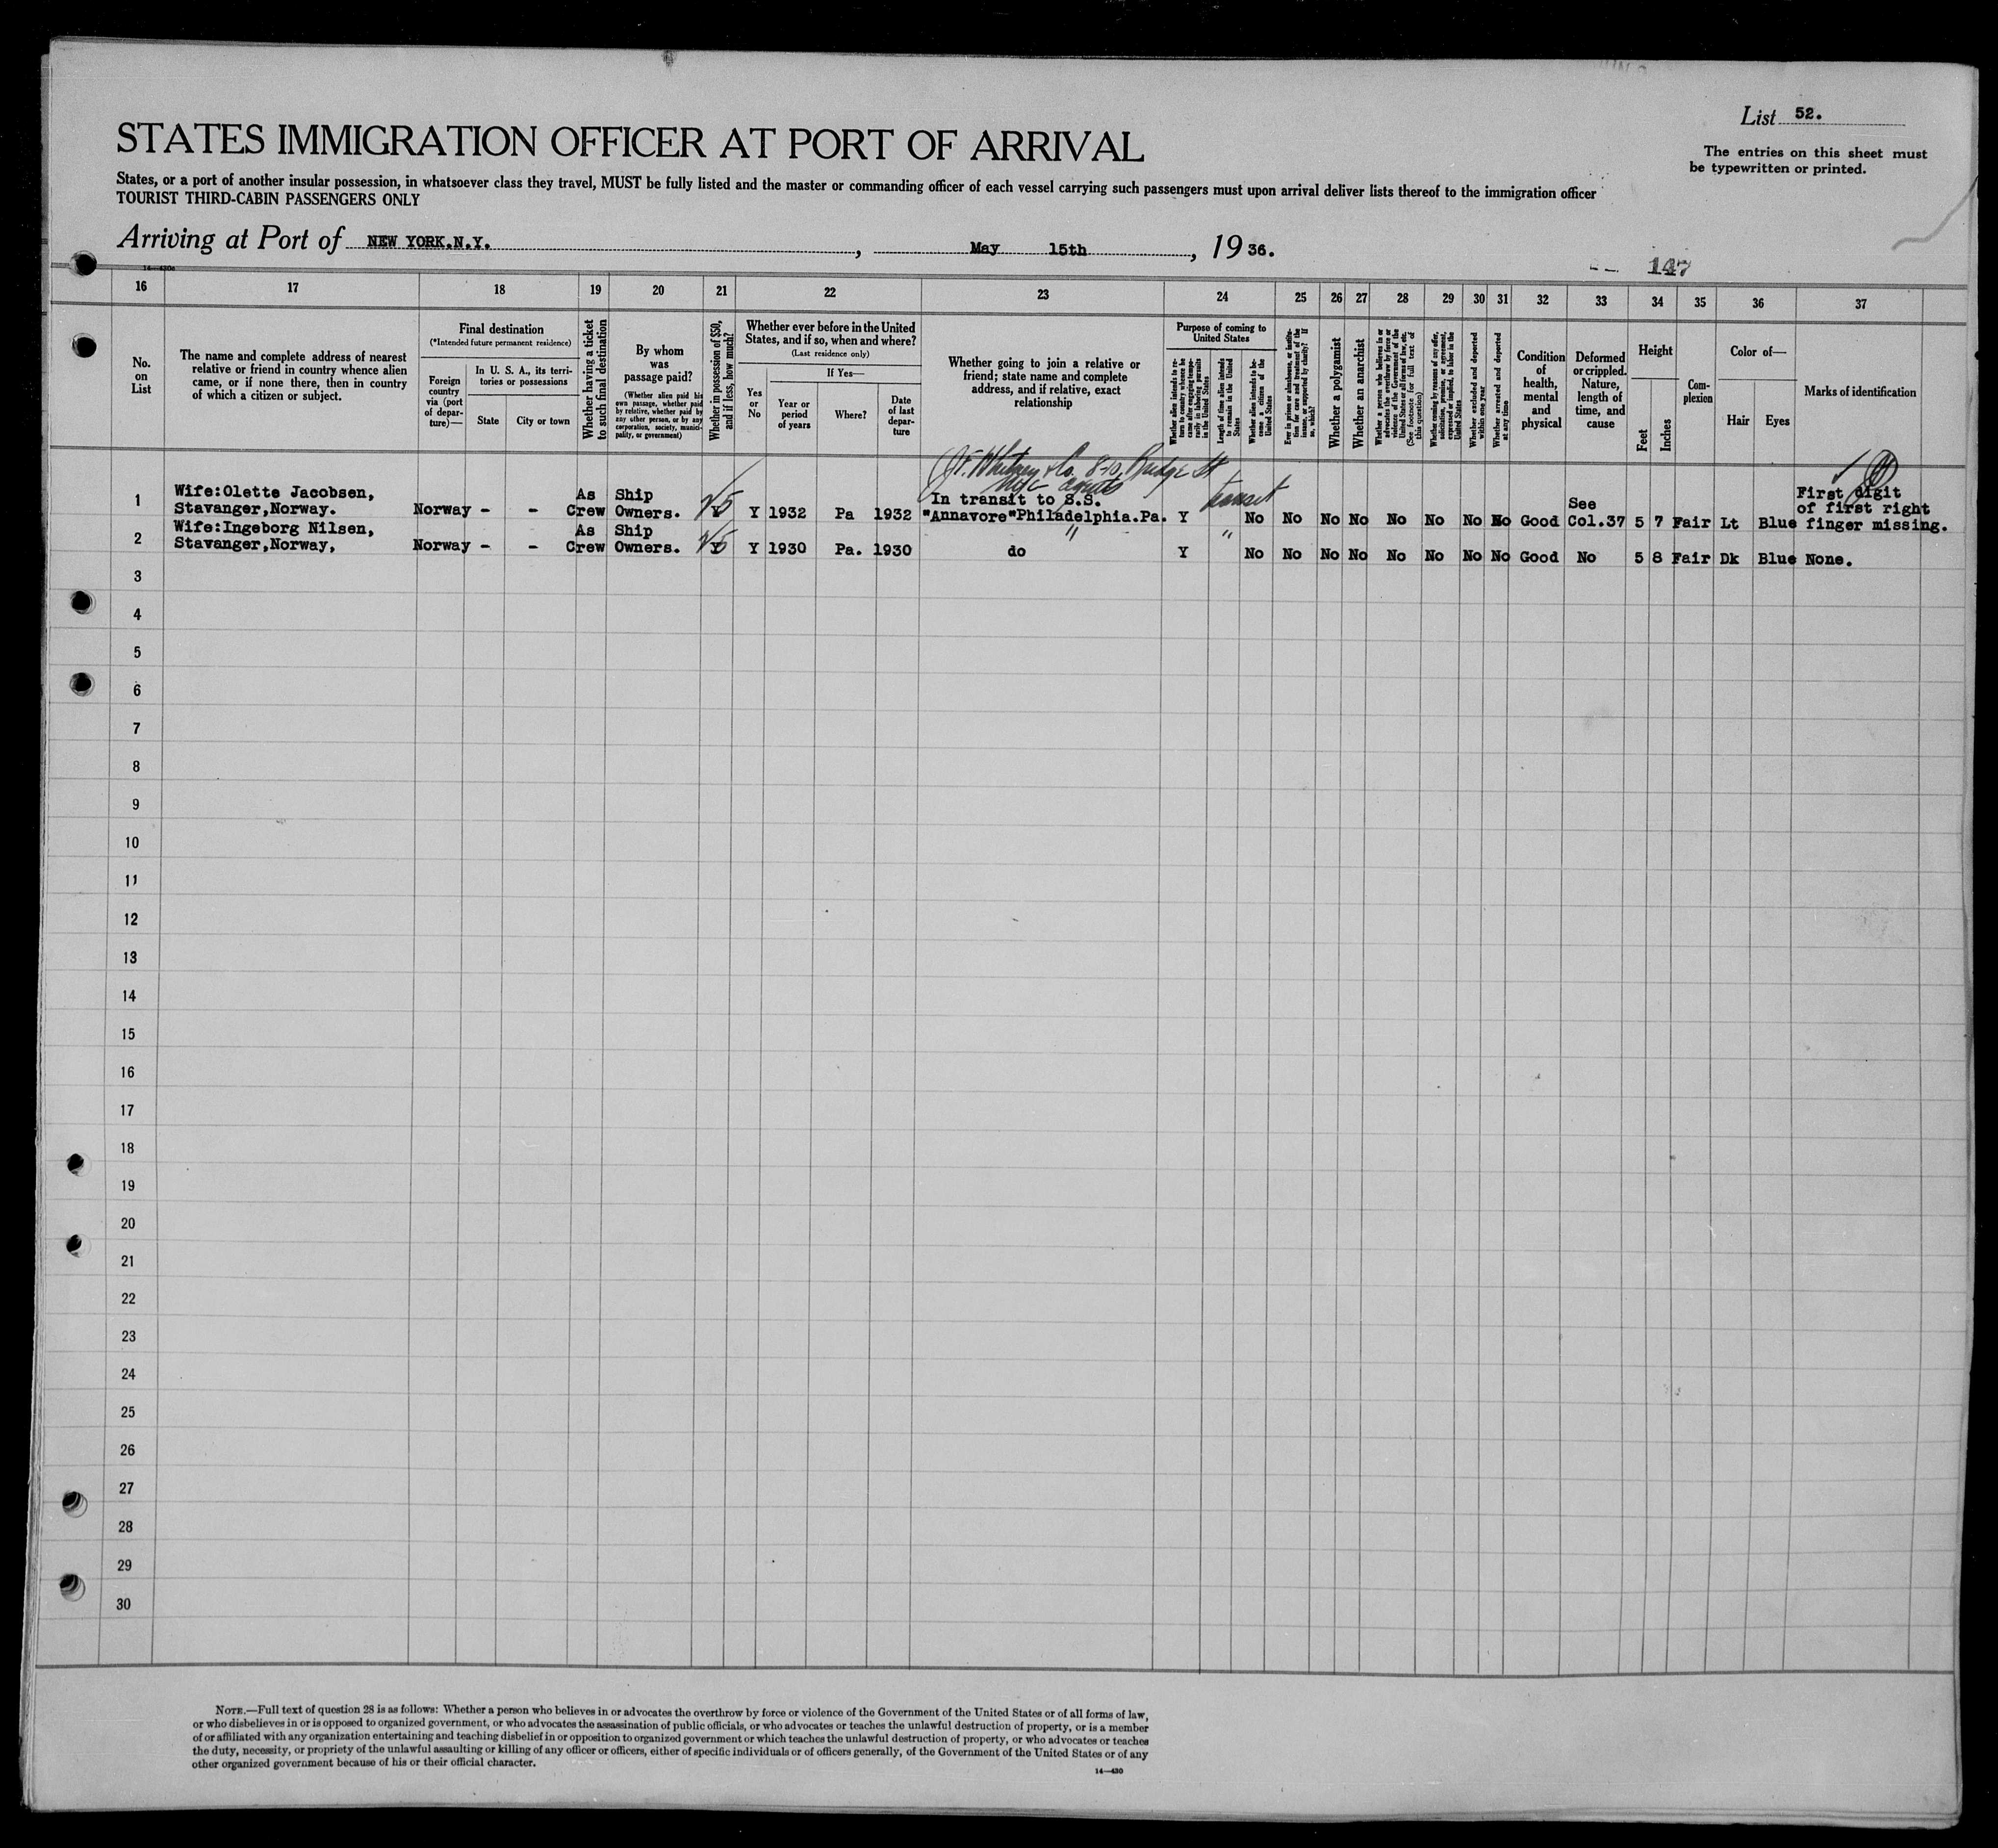 List 52.
STATES IMMIGRATION OFFICER AT PORT OF ARRIVAL
The entries on this sheet must
be typewritten or printed.
States, or a port of another insular possession, in whatsoever class they travel, MUST be fully listed and the master or commanding officer of each vessel carrying such passengers must upon arrival deliver lists thereof to the immigration officer
TOURIST THIRD-CABIN PASSENGERS ONLY
Arriving at Port of NEW YORK.N.Y. , May 15th , 1936.
147
16 17 18 19 20 21 22 23 24 25 26 27 28 29 30 31 32 33 34 35 36 37
No.
on
List
The name and complete address of nearest
relative or friend in country whence alien
came, or if none there, then in country
of which a citizen or subject.
Final destination
(*Intended future permanent residence)
Foreign
country
via (port
of depar-
ture)—
In U. S. A., its terri-
tories or possessions
State
City or town
Whether having a ticket
to such final destination
By whom
was
passage paid?
(Whether alien paid his
own passage, whether paid
by relative, whether paid by
any other person, or by any
corporation, society, munici-
pality, or government)
Whether in possession of $50,
and if less, how much?
Whether ever before in the United
States, and if so, when and where?
(Last residence only)
Yes
or
No
If Yes—
Year or
period
of years
Where?
Date
of last
depar-
ture
Whether going to join a relative or
friend; state name and complete
address, and if relative, exact
relationship
Purpose of coming to
United States
Whether alien intends to re-
turn to country whence he
came after engaging tempo-
rarily in laboring pursuits
in the United States
Length of time alien intends
to remain in the United
States
Whether alien intends to be-
come a citizen of the
United States
Ever in prison or almshouse, or institu-
tion for care and treatment of the
insane, or supported by charity? If
so, which?
Whether a polygamist
Whether an anarchist
Whether a person who believes in or
advocates the overthrow by force or
violence of the Government of the
United States or all forms of law, etc.
(See footnote for full text of
this question)
Whether coming by reasons of any offer,
solicitation, promise, or agreement,
expressed or implied, to labor in the
United States
Whether excluded and deported
within one year
Whether arrested and deported
at any time
Condition
of
health,
mental
and
physical
Deformed
or crippled.
Nature,
length of
time, and
cause
Height
Feet
Inches
Com-
plexion
Color of—
Hair
Eyes
Marks of identification
Whitney & Co. 8-10 Bridge St
agents
transit
1 Wife:Olette Jacobsen, As Ship In transit to S.S. See First digit
of first right
Stavanger,Norway. Norway - - Crew Owners. Y Y 1932 Pa 1932 "Annavore"Philadelphia.Pa. Y No No No No No No No No Good Col.37 5 7 Fair Lt Blue finger missing.
2 Wife:Ingeborg Nilsen, As Ship " "
Stavanger,Norway, Norway - - Crew Owners. Y Y 1930 Pa. 1930 do Y No No No No No No No No Good No 5 8 Fair Dk Blue None.
3
4
5
6
7
8
9
10
11
12
13
14
15
16
17
18
19
20
21
22
23
24
25
26
27
28
29
30
NOTE.—Full text of question 28 is as follows: Whether a person who believes in or advocates the overthrow by force or violence of the Government of the United States or of all forms of law,
or who disbelieves in or is opposed to organized government, or who advocates the assassination of public officials, or who advocates or teaches the unlawful destruction of property, or is a member
of or affiliated with any organization entertaining and teaching disbelief in or opposition to organized government or which teaches the unlawful destruction of property, or who advocates or teaches
the duty, necessity, or propriety of the unlawful assaulting or killing of any officer or officers, either of specific individuals or of officers generally, of the Government of the United States or of any
other organized government because of his or their official character.
14—430